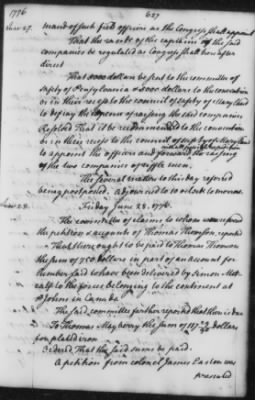 1776 627
June 27. mand of such field officers as the Congress shall appoint
That the rank of the captains of the said
companies be regulated as Congress shall hereafter
direct
That 5000 dollars be sent to the committee of
safety of Pensylvania & 5000 dollars to the convention
or in their recess to the council of safety of Maryland
to defray the expence of raising the said companies
Resolved That it be recommended to the convention
or in their recess to the council of safety of Maryland
to appoint the officers and forward the raising
of the two companies of rifle men.
The several matters to this day referred
being postponed. Adjourned to 10 oClock to morrow
June 28. Friday June 28. 1776.
The committee of claims to whom was referred
the petition & accounts of Thomas Thomson reported
That there ought to be paid to Thomas Thomson
the sum of 750 dollars in part of an account for
lumber said to have been delivered by Simon Met-
calf to the forces belonging to the continent at
St Johns in Canada
The said committee farther reported that there is due
To Thomas Mayberry the sum of dollars
for plated iron
Ordered, That the said sums be paid.
A petition from colonel James Easton was
presented